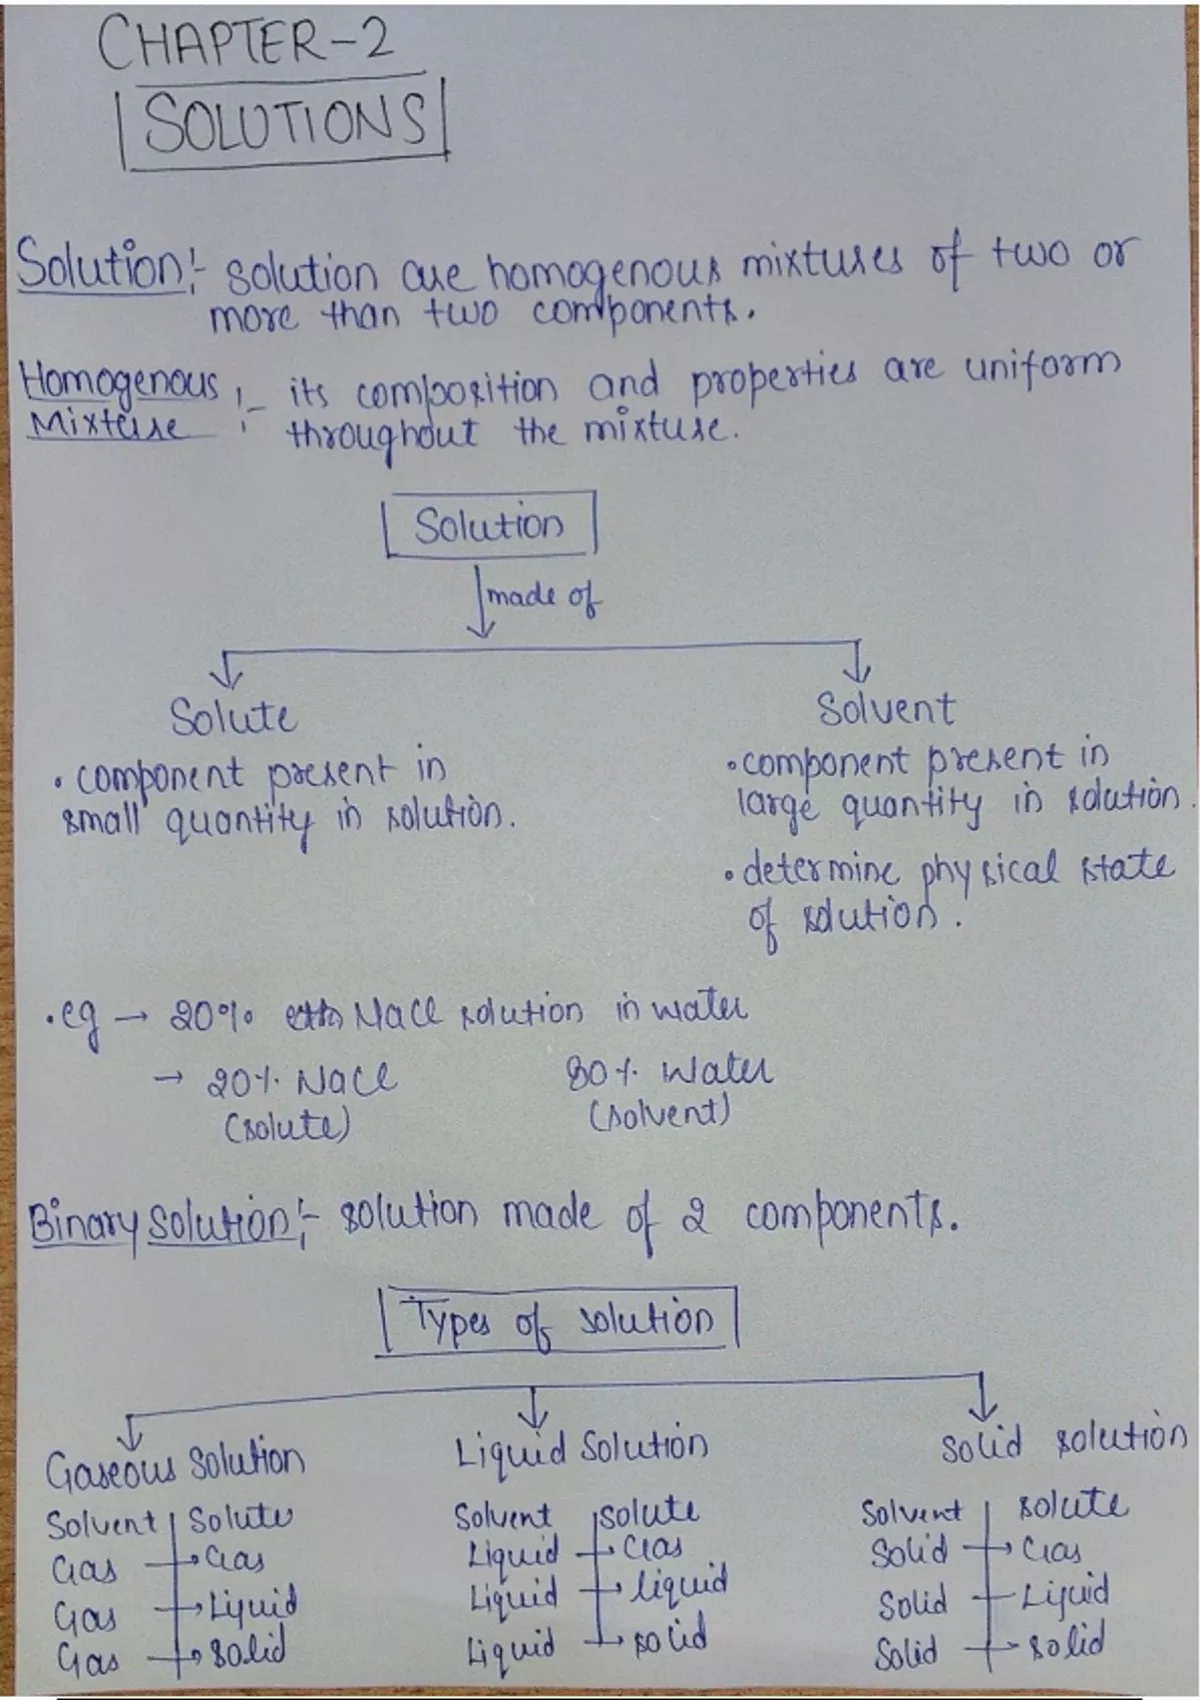 CHAPTER-2
SOLUTIONS
Solution:- solution are homogenous mixtures of two or
more than two components.
Homogenous Mixture :- its composition and properties are uniform
throughout the mixture.
Solution
made of
Solute
• component present in
small quantity in solution.
Solvent
• component present in
large quantity in solution.
• determine physical state
of solution.
• eg → 20% NaCl solution in water
→ 20% NaCl 80% Water
(solute) (solvent)
Binary Solution:- solution made of 2 components.
Types of solution
Gaseous Solution
Solvent | Solute
Gas → Gas
Gas → Liquid
Gas → Solid
Liquid Solution
Solvent | Solute
Liquid → Gas
Liquid → liquid
Liquid → solid
Solid solution
Solvent | solute
Solid → Gas
Solid - Liquid
Solid - solid